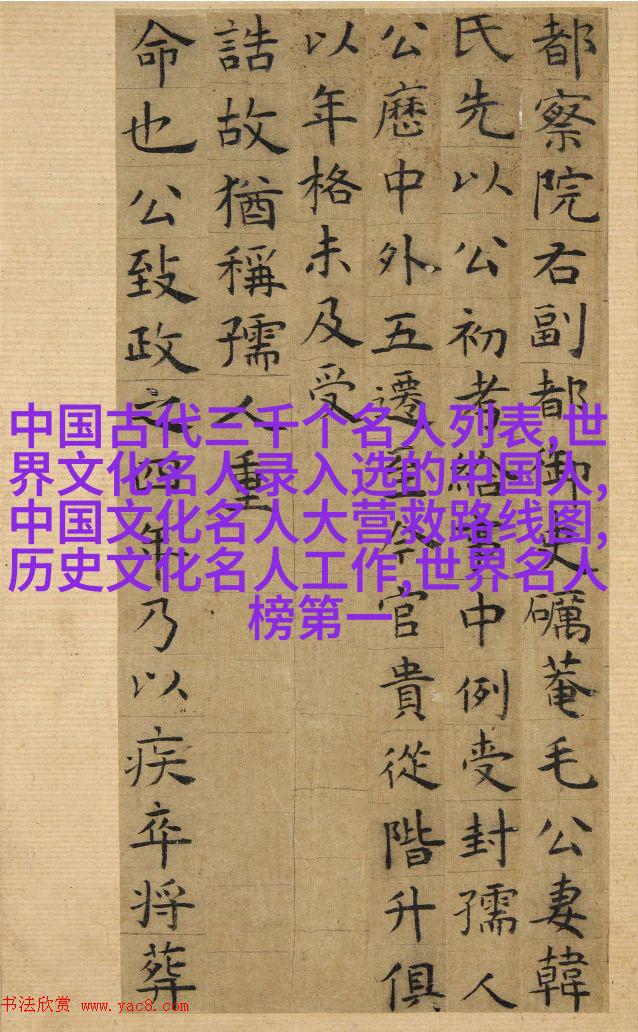 都察院右副都御史礪菴毛公妻韓
氏先以公初考給事中例受封孺人
公歷中外五遷至今官貴從階升俱
以年格未及受
誥故猶稱孺人重
命也公致政之四年乃以疾卒将葬
中国古代三千个名人列表,世
界文化名人录入选的中国人,
中国文化名人大营救路线图,
历史文化名人工作,世界名人
榜第一
书法欣赏 www.yac8.com